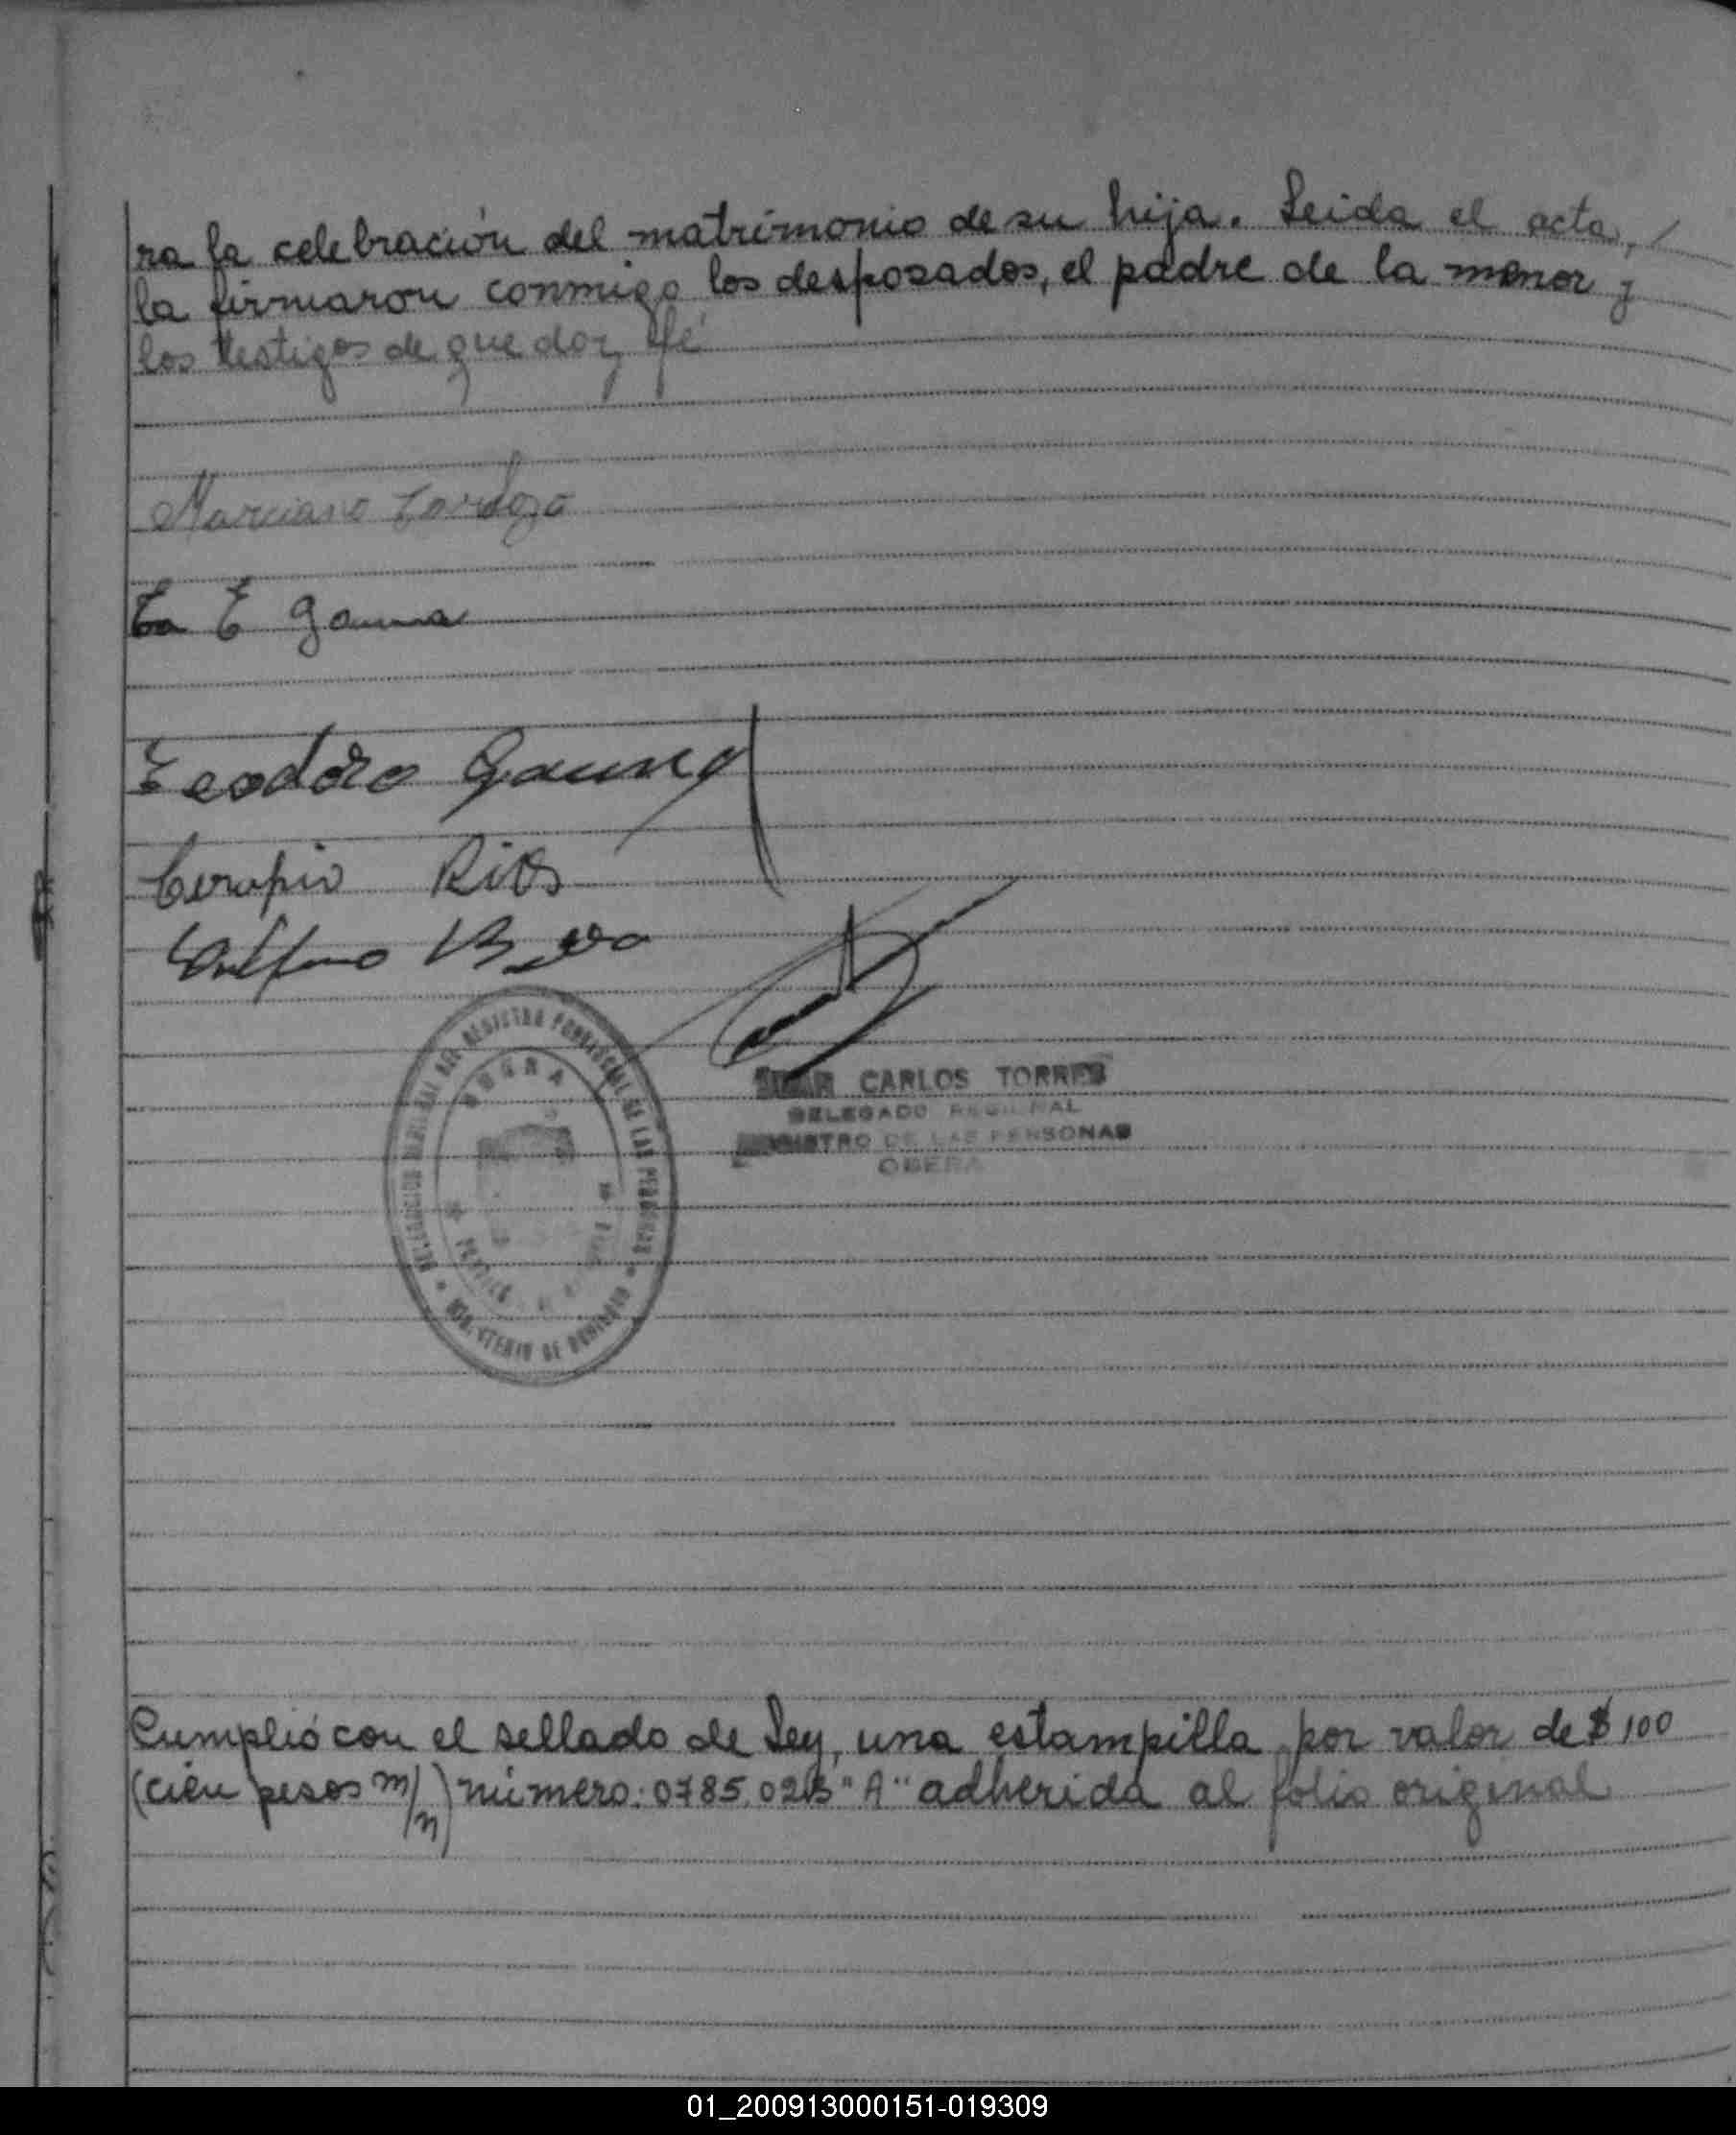 ra la celebración del matrimonio de su hija. Leida el acta, /
la firmaron conmigo los desposados, el padre de la menor y
los testigos de que doy fé
Marciano Cardozo
E Gauna
Teodoro Gauna
Cerapio Rios
CARLOS TORRES
DELEGADO REGIONAL
REGISTRO DE LAS PERSONAS
OBERA
DEL REGISTRO PROVINCIAL DE LAS PERSONAS
MINISTERIO DE GOBIERNO
Cumplió con el sellado de Ley, una estampilla por valor de $ 100
(cien pesos m/n) número: 0785.023 "A" adherida al folio original
01_200913000151-019309